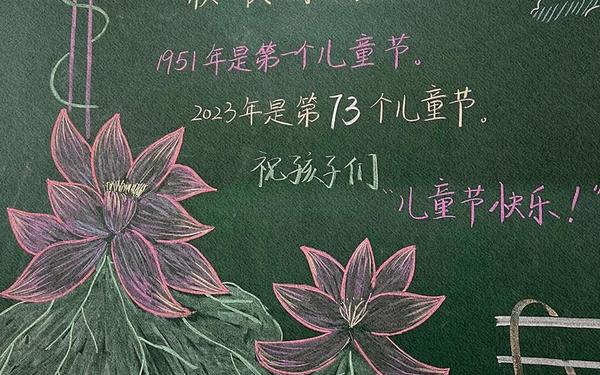 1951年是第一个儿童节。
2023年是第73个儿童节。
祝孩子们
"儿童节快乐!"